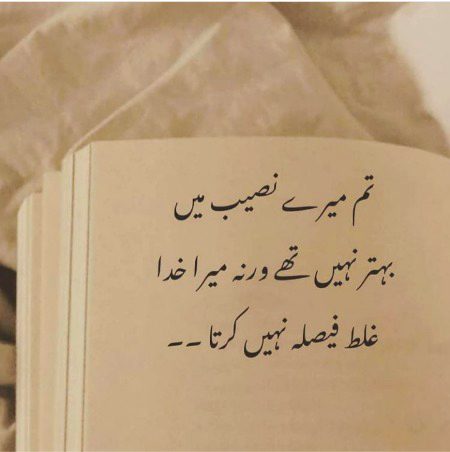 تم میرے نصیب میں
بہتر نہیں تھے ورنہ میرا خدا
غلط فیصلہ نہیں کرتا ۔۔